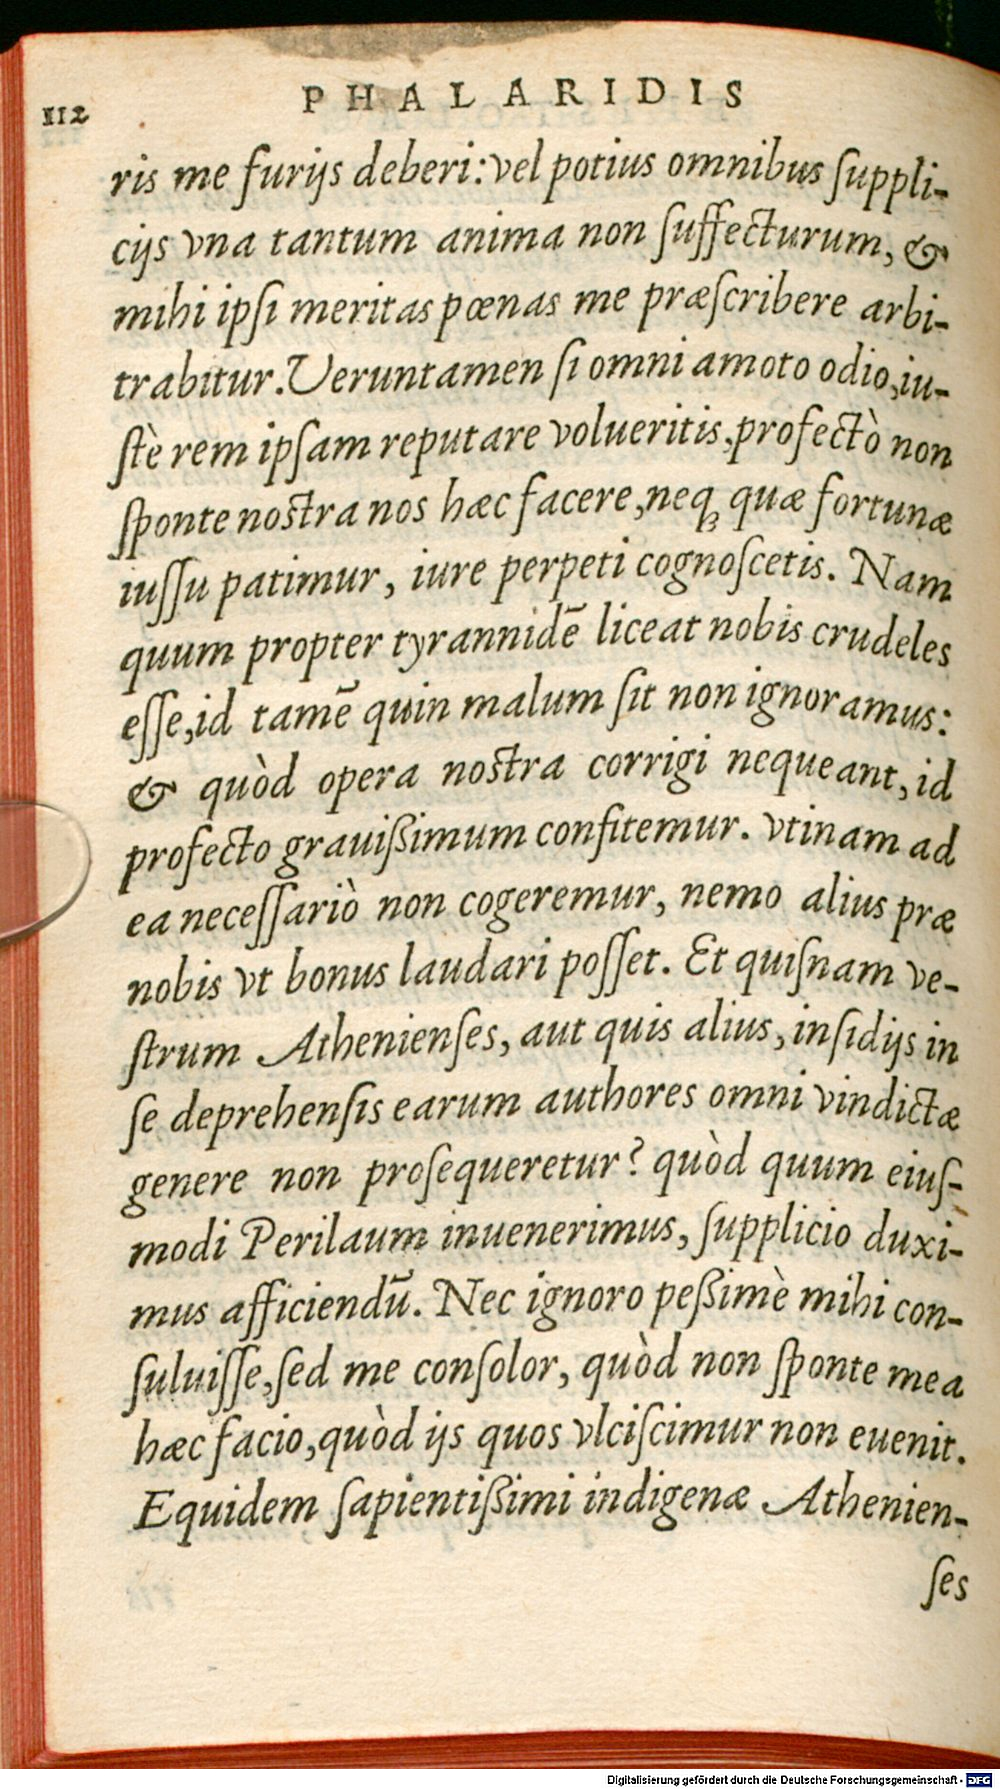 112
PHALARIDIS
ris me furijs deberi: vel potius omnibus ſuppli-
cijs vna tantum anima non ſuffecturum, &
mihi ipſi meritas pœnas me præſcribere arbi-
trabitur. Veruntamen ſi omni amoto odio, iu-
ſtè rem ipſam reputare volueritis, profectò non
ſponte nostra nos hæc facere, neqꝫ quæ fortunæ
iuſſu patimur, iure perpeti cognoſcetis. Nam
quum propter tyrannidē liceat nobis crudeles
eſſe, id tamē quin malum ſit non ignoramus:
& quòd opera nostra corrigi nequeant, id
profecto grauißimum confitemur. vtinam ad
ea neceſſariò non cogeremur, nemo alius præ
nobis vt bonus laudari poſſet. Et quiſnam ve-
ſtrum Athenienſes, aut quis alius, inſidijs in
ſe deprehenſis earum authores omni vindictæ
genere non proſequeretur? quòd quum eiuſ-
modi Perilaum inuenerimus, ſupplicio duxi-
mus afficiendū. Nec ignoro peßimè mihi con-
ſuluiſſe, ſed me conſolor, quòd non ſponte mea
hæc facio, quòd ijs quos vlciſcimur non euenit.
Equidem ſapientißimi indigenæ Athenien-
ſes
Digitalisierung gefördert durch die Deutsche Forschungsgemeinschaft - DFG